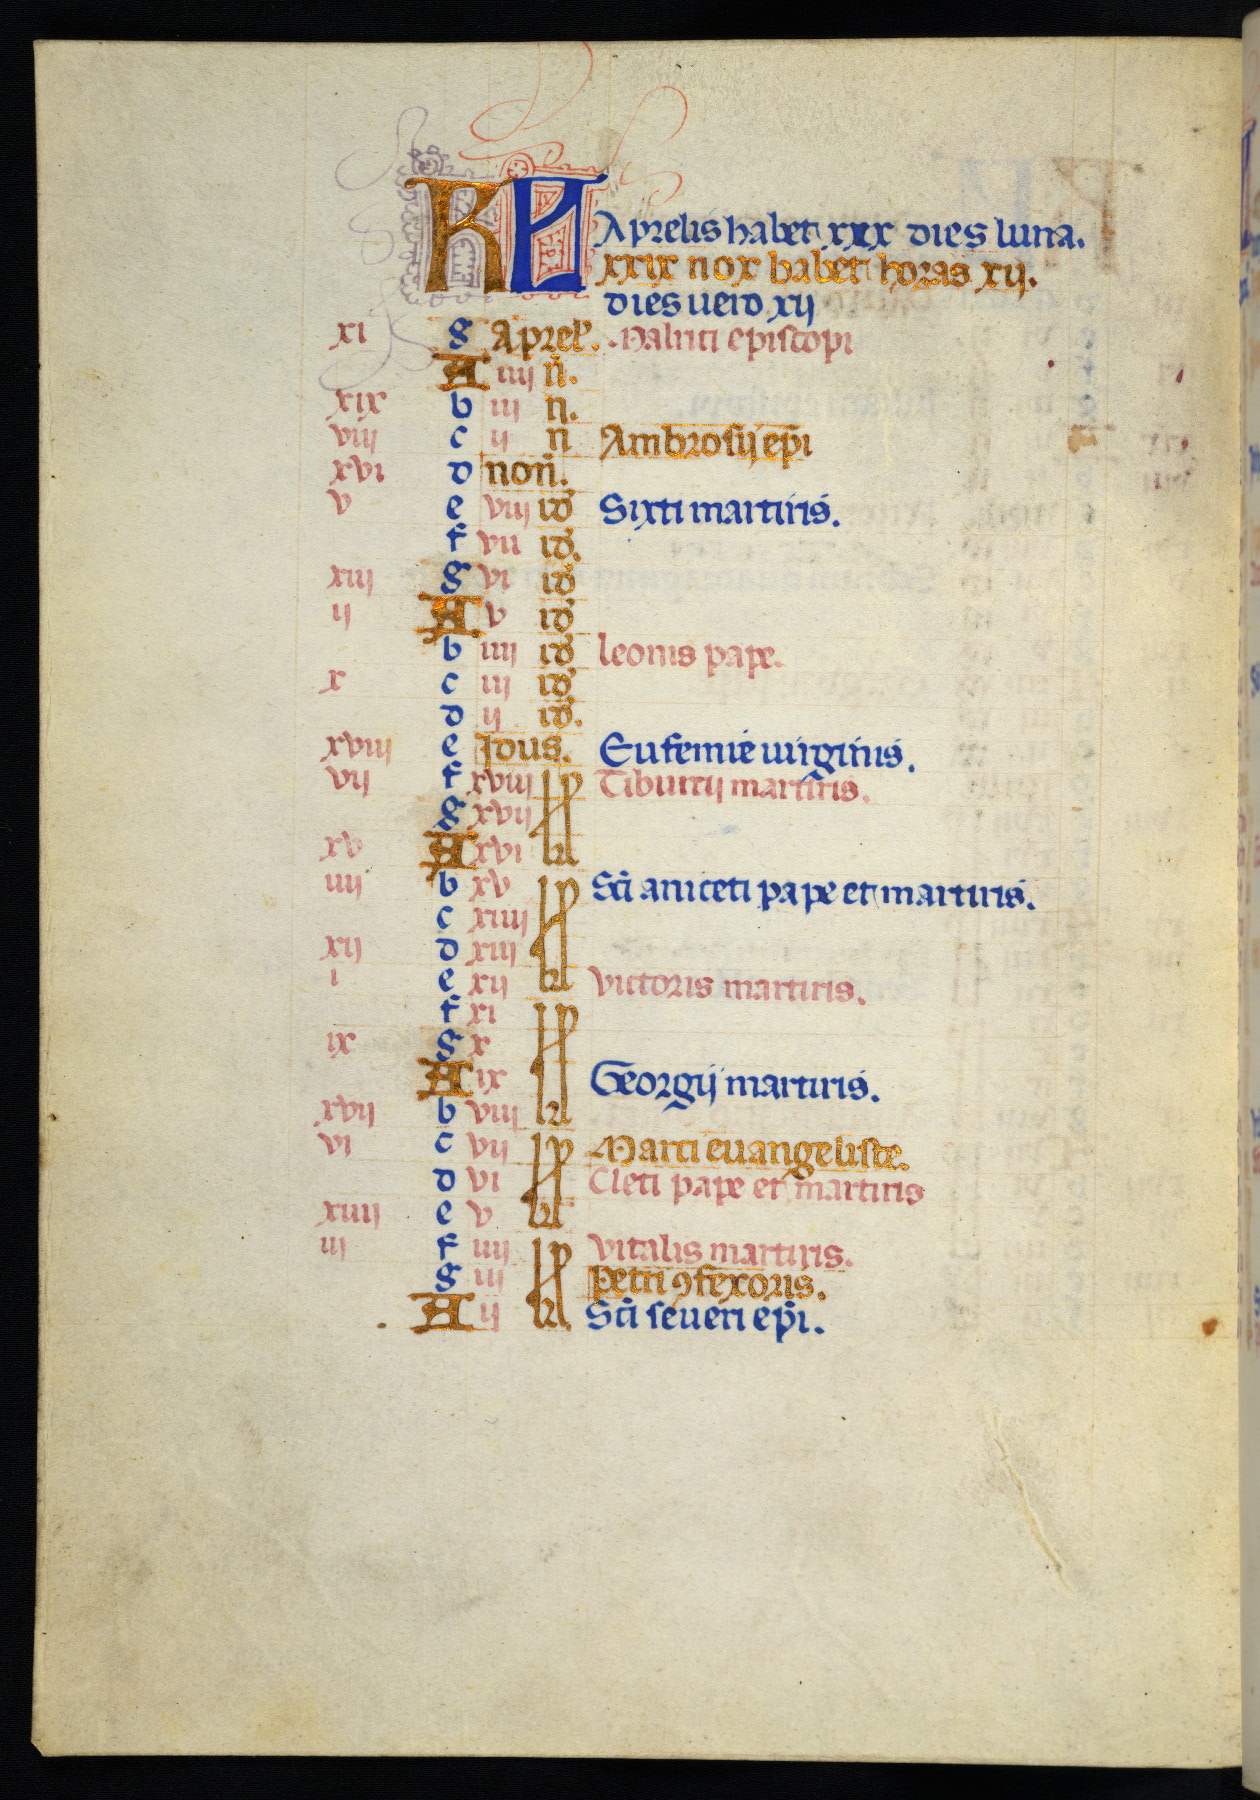 KL Aprelis habet xxx dies luna.
xxix nox habet horas xij.
dies uero xij
xi g Aprel. Malriti episcopi
A iiij n.
xix b iii n.
viij c ij n Ambrosij epi
xvi d non.
v e viij id Sixti martiris.
f vii id.
xiij g vi id
ij A v id
b iiij id leonis pape.
x c iij id
d ij id.
xviij e Idus. Eufemie uirginis.
vij f xviij kl Tiburtij martiris.
g xvij
xv A xvi
iiij b xv kl Sci aniceti pape et martiris.
c xiiij
xij d xiij
i e xij victoris martiris.
f xi kl
ix g x
A ix Georgij martiris.
xvij b viij
vi c vij kl Marci evangeliste.
d vi Cleti pape et martiris
xiiij e v
iij f iiij kl vitalis martiris.
g iij Petri 9fexoris.
A ij Sci seueri epi.